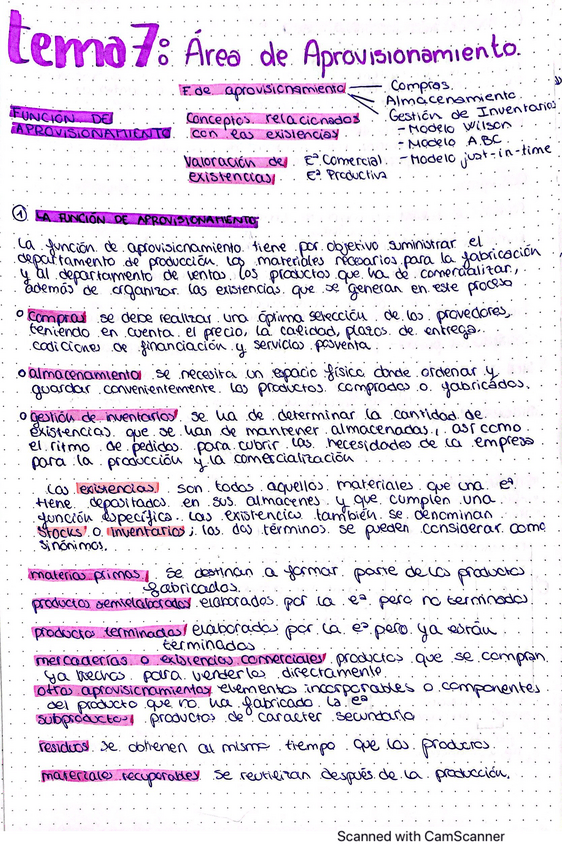 tema 7: Área de Aprovisionamiento.
F. de aprovisionamiento
Compras
Almacenamiento
Gestión de Inventarios
- Modelo Wilson
- Modelo ABC
- Modelo just-in-time
FUNCIÓN DE
APROVISIONAMIENTO
Conceptos relacionados
con las existencias
Valoración de
existencias
Eª Comercial
Eª Productiva
① LA FUNCIÓN DE APROVISIONAMIENTO
La función de aprovisionamiento tiene por objetivo suministrar el
departamento de producción los materiales necesarios para la fabricación
y al departamento de ventas los productos que ha de comercializar,
además de organizar las existencias que se generan en este proceso
° Compras se debe realizar una óptima selección de los provedores,
teniendo en cuenta el precio, la calidad, plazos de entrega,
codiciones de financiación y servicios posventa.
° almacenamiento se necesita un espacio físico donde ordenar y
guardar convenientemente los productos comprados o fabricados.
° gestión de inventarios se ha de determinar la cantidad de
existencias que se han de mantener almacenadas, así como
el ritmo de pedidos para cubrir las necesidades de la empresa
para la producción y la comercialización
Las existencias son todos aquellos materiales que una eª
tiene depositados en sus almacenes y que cumplen una
función específica. Las existencias también se denominan
stocks o inventarios; los dos términos se pueden considerar como
sinónimos.
materias primas se destinan a formar parte de los productos
fabricados
productos semielaborados elaborados por la eª pero no terminados
productos terminados elaborados por la eª pero ya están
terminados
mercaderías o existencias comerciales productos que se compran
ya hechos para venderlos directamente
otros aprovisionamientos elementos incorporables o componentes
del producto que no ha fabricado la eª
subproductos productos de caracter secundario
residuos se obtienen al mismo tiempo que los productos
materiales recuperables se reutilizan después de la producción.
Scanned with CamScanner